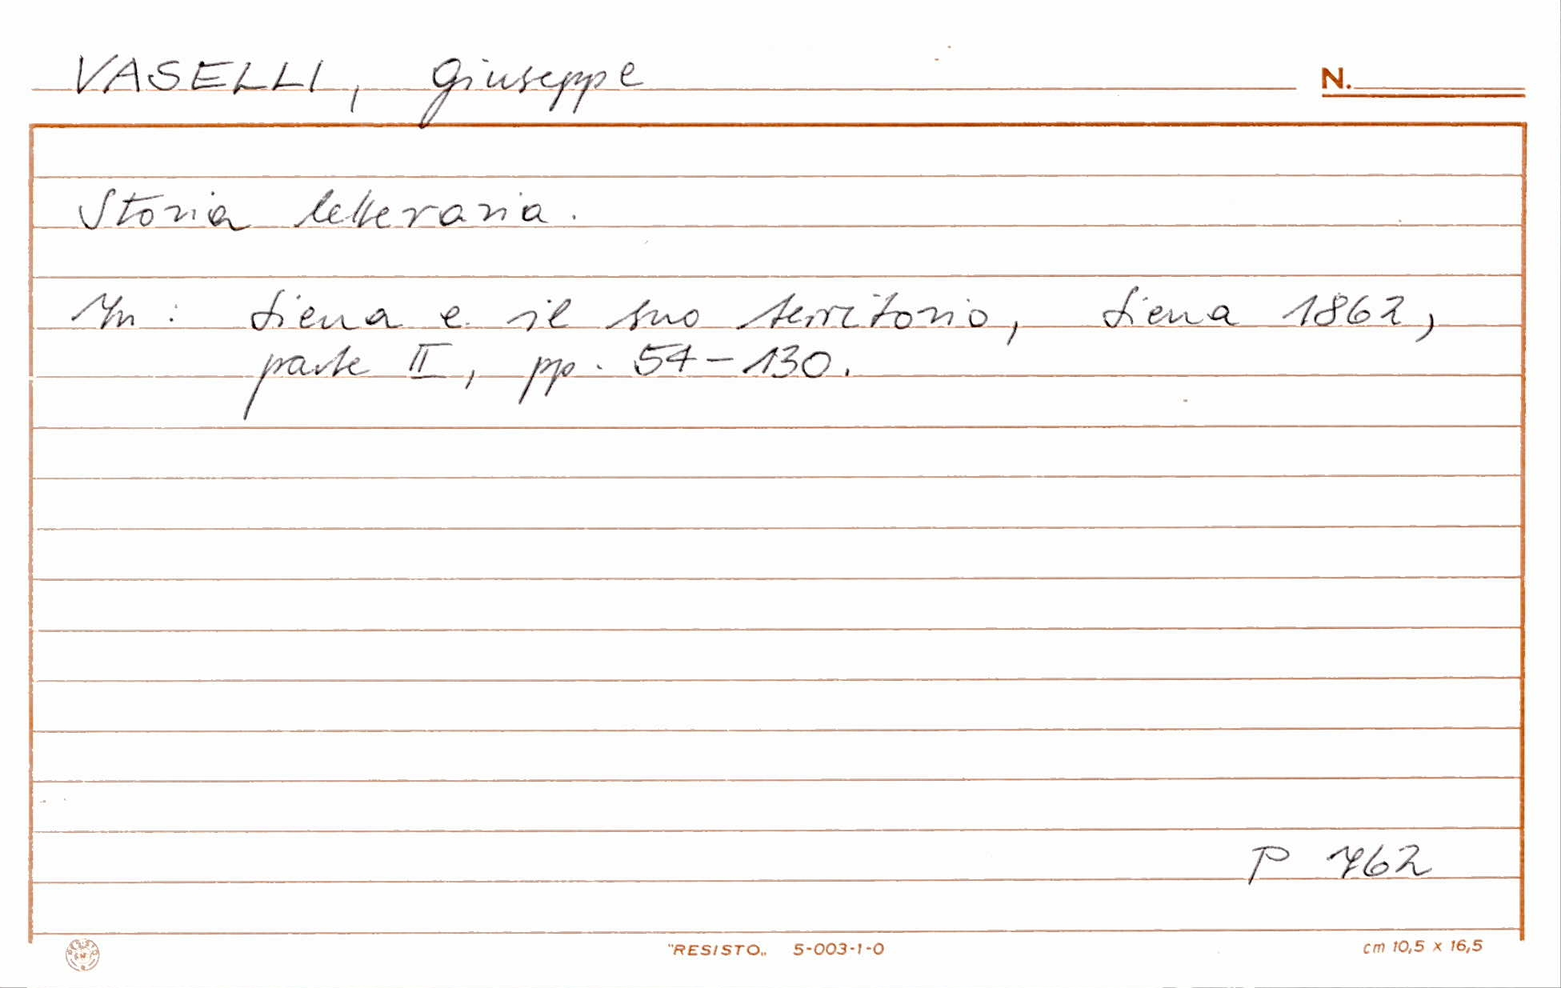 VASELLI, Giuseppe
N.
Storia letteraria.
In: Siena e il suo territorio, Siena 1862,
parte II, pp. 54-130.
P 762
"RESISTO„ 5-003-1-0
cm 10,5 x 16,5